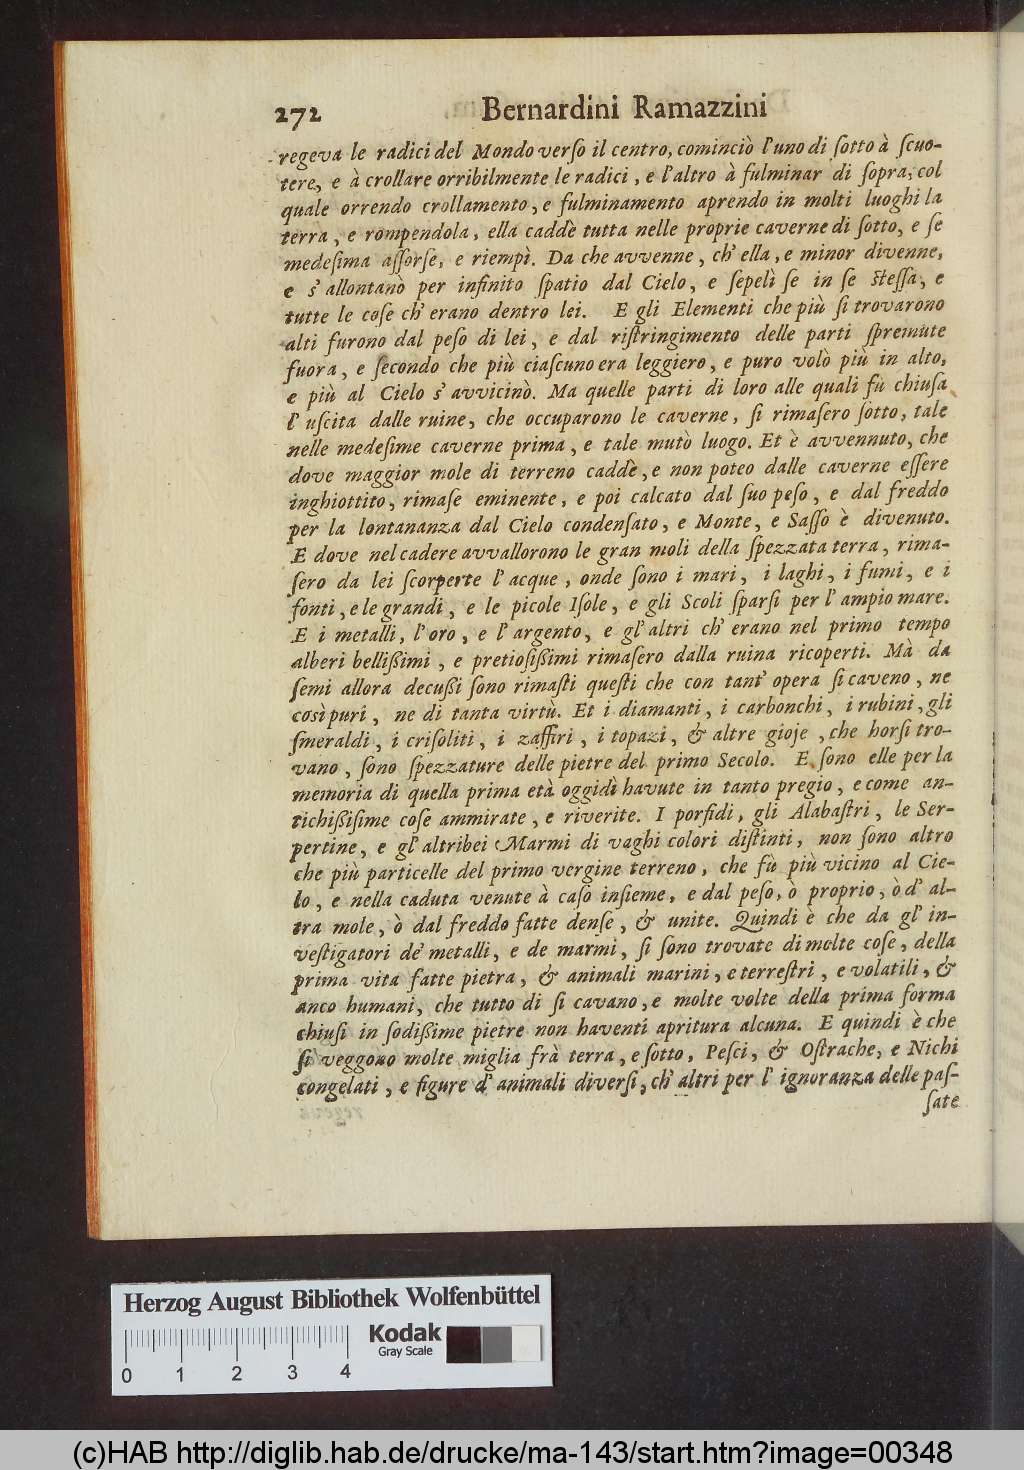 272 Bernardini Ramazzini
regeva le radici del Mondo verſo il centro, cominciò l'uno di ſotto à ſcuo-
tere, e à crollare orribilmente le radici, e l'altro à fulminar di ſopra, col
quale orrendo crollamento, e fulminamento aprendo in molti luoghi la
terra, e rompendola, ella caddè tutta nelle proprie caverne di ſotto, e ſe
medeſima aſſorſe, e riempì. Da che avvenne, ch' ella, e minor divenne,
e s' allontanò per infinito ſpatio dal Cielo, e ſepelì ſe in ſe ſteſſa, e
tutte le coſe ch' erano dentro lei. E gli Elementi che più ſi trovarono
alti furono dal peſo di lei, e dal riſtringimento delle parti ſpremute
fuora, e ſecondo che più ciaſcuno era leggiero, e puro volò più in alto,
e più al Cielo s' avvicinò. Ma quelle parti di loro alle quali fù chiuſa
l' uſcita dalle ruine, che occuparono le caverne, ſi rimaſero ſotto, tale
nelle medeſime caverne prima, e tale mutò luogo. Et è avvennuto, che
dove maggior mole di terreno caddè, e non poteo dalle caverne eſſere
inghiottito, rimaſe eminente, e poi calcato dal ſuo peſo, e dal freddo
per la lontananza dal Cielo condenſato, e Monte, e Saſſo è divenuto.
E dove nel cadere avvallorono le gran moli della ſpezzata terra, rima-
ſero da lei ſcorperte l' acque, onde ſono i mari, i laghi, i fumi, e i
fonti, e le grandi, e le picole Iſole, e gli Scoli ſparſi per l' ampio mare.
E i metalli, l' oro, e l' argento, e gl' altri ch' erano nel primo tempo
alberi belliſſimi, e pretioſiſſimi rimaſero dalla ruina ricoperti. Mà da
ſemi allora decuſſi ſono rimaſti queſti che con tant' opera ſi caveno, ne
così puri, ne di tanta virtù. Et i diamanti, i carbonchi, i rubini, gli
ſmeraldi, i criſoliti, i zaffiri, i topazi, & altre gioje, che horſi tro-
vano, ſono ſpezzature delle pietre del primo Secolo. E ſono elle per la
memoria di quella prima età oggidì havute in tanto pregio, e come an-
tichiſſiſime coſe ammirate, e riverite. I porfidi, gli Alabaſtri, le Ser-
pertine, e gl' altribei Marmi di vaghi colori diſtinti, non ſono altro
che più particelle del primo vergine terreno, che fù più vicino al Cie-
lo, e nella caduta venute à caſo inſieme, e dal peſo, ò proprio, ò d' al-
tra mole, ò dal freddo fatte denſe, & unite. Quindi è che da gl' in-
veſtigatori de' metalli, e de marmi, ſi ſono trovate di molte coſe, della
prima vita fatte pietra, & animali marini, e terreſtri, e volatili, &
anco humani, che tutto di ſi cavano, e molte volte della prima forma
chiuſi in ſodiſſime pietre non haventi apritura alcuna. E quindi è che
ſi veggono molte miglia frà terra, e ſotto, Peſci, & Oſtrache, e Nichi
congelati, e figure d' animali diverſi, ch' altri per l' ignoranza delle paſ-
ſate
Herzog August Bibliothek Wolfenbüttel
Kodak
Gray Scale
0 1 2 3 4
(c)HAB http://diglib.hab.de/drucke/ma-143/start.htm?image=00348